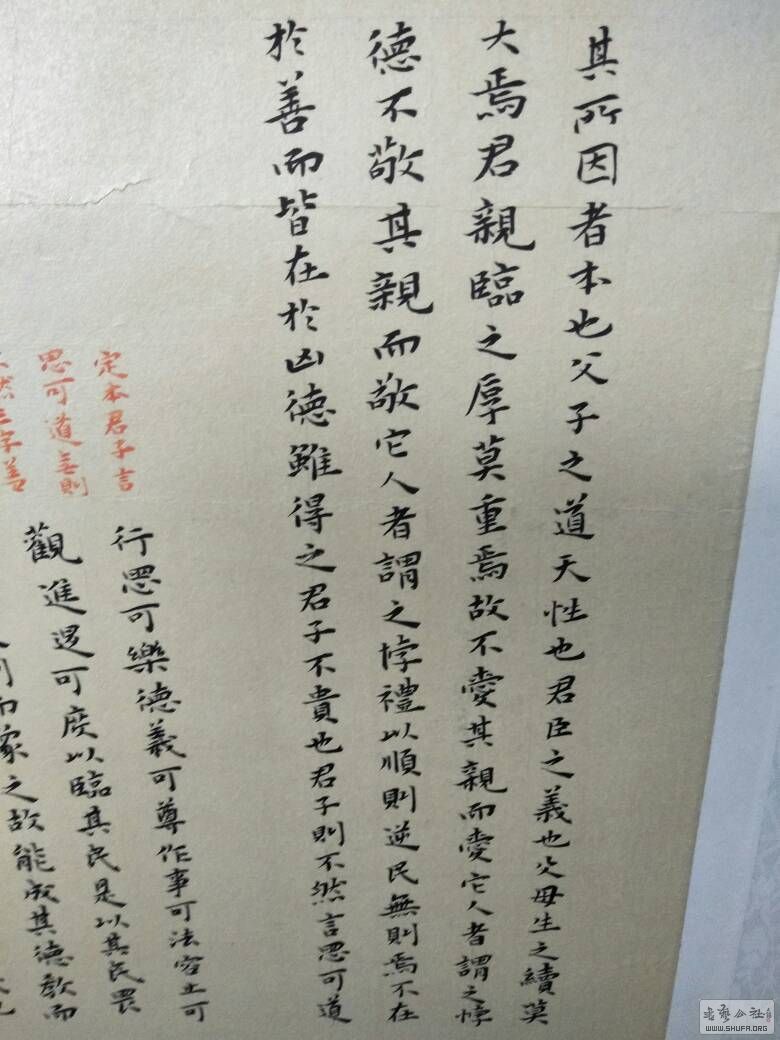 其所因者本也父子之道天性也君臣之義也父母生之續莫
大焉君親臨之厚莫重焉故不愛其親而愛它人者謂之悖
德不敬其親而敬它人者謂之悖禮以順則逆民無則焉不在
於善而皆在於凶德雖得之君子不貴也君子則不然言思可道
定本君子言
思可道無則
不然三字善
行思可樂德義可尊作事可法容止可
觀進退可度以臨其民是以其民畏
則而象之故能成其德教而
書藝公社
www.SHUFA.ORG